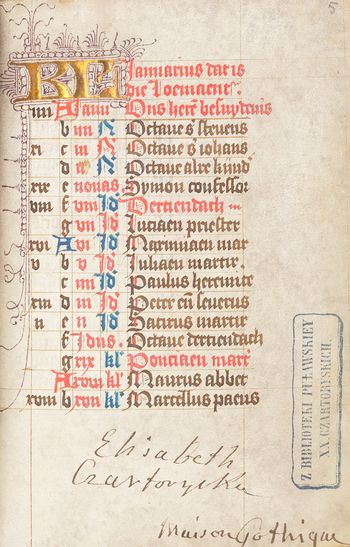 5
KL Januarius dat is
die Loemaent.
iiii A Janu Ons herē besnydenis
b iiii N Octave s steuens
xi c iii N Octave s iohans
d ii N Octave alre kind
xix e nonas. Symon confessor
viii f viii Id Dertiendach
g vii Id Luciaen priester
xvi A vi Id Marimiaen mar
v b v Id Juliaen martir.
c iiii Id Paulus heremite
xiii d iii Id Peter eñ seuerus
ii e ii Id Satirus martir
f Idus. Octave dertiendach
g xix kl Ponciaen mart
A xviii kl Maurus abbet
xviii b xvii kl Marcellus paeus
Z BIBLIOTEKI PUŁAWSKIEY
XX. CZARTORYSKICH.
Elisabeth
Czartoryska
Maison Gothique